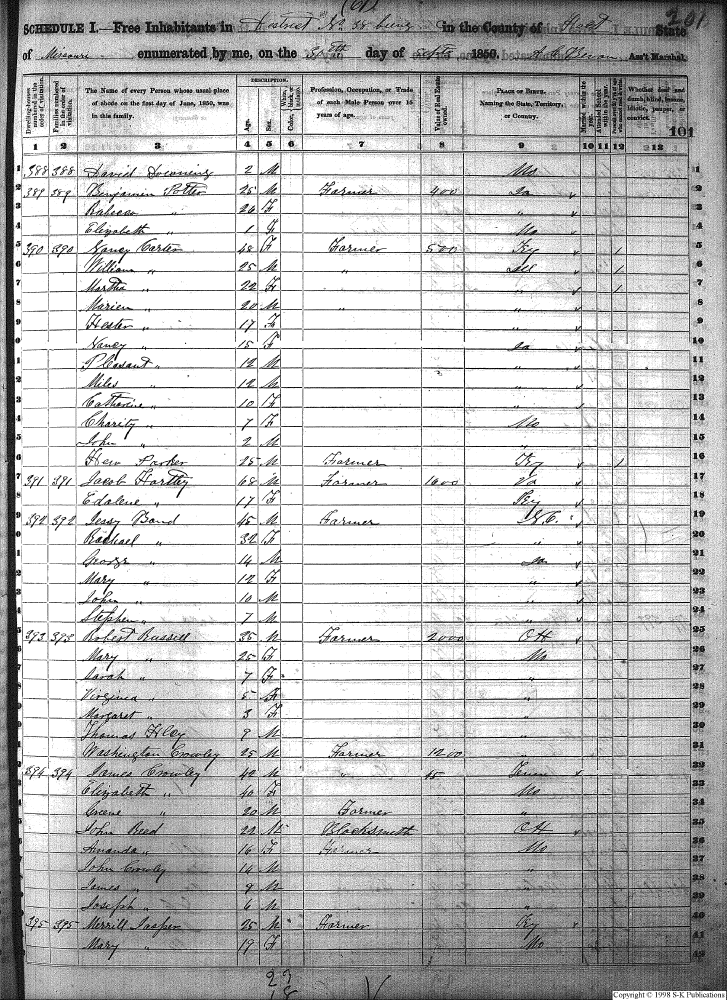 201
SCHEDULE I.—Free Inhabitants in District No 38 being in the County of Holt State
of Missouri enumerated by me, on the day of Sept 1850. Ass't Marshal.
DESCRIPTION.
Dwelling-houses numbered in the order of visitation.
Families numbered in the order of visitation.
The Name of every Person whose usual place of abode on the first day of June, 1850, was in this family.
Age.
Sex.
Color, White, black, or mulatto.
Profession, Occupation, or Trade of each Male Person over 15 years of age.
Value of Real Estate owned.
PLACE OF BIRTH. Naming the State, Territory, or Country.
Married within the year.
Attended School within the year.
Whether deaf and dumb, blind, insane, idiotic, pauper, or convict.
101
1 2 3 4 5 6 7 8 9 10 11 12 13
1 388 388 David Downing 2 M Mo 1
2 389 389 Benjamin Potter 25 M Farmer 400 Ia 2
3 Rebecca " 26 F " 3
4 Elizabeth " 1 F Mo 4
5 390 390 Carter 48 F Farmer 500 Ky 1 5
6 William " 25 M " Ill 1 6
7 Martha " 22 F " 1 7
8 Marien " 20 M " " 8
9 Hester " 17 F " 9
10 Nancy " 15 F Ia 10
11 Plesant " 12 M " 11
12 Miles " 12 M " 12
13 Catharine " 10 F " 13
14 Charity " 7 F Mo 14
15 John " 2 M " 15
16 Hew Parker 25 M Farmer Ky 1 16
17 391 391 Jacob Hartley 68 M Farmer 1600 Va 17
18 Edalene " 17 F Ky 18
19 392 392 Jessy Band 45 M Farmer N.C. 19
20 Rachael " 32 F " 20
21 George " 14 M Ia 21
22 Mary " 12 F " 22
23 John " 10 M " 23
24 Stephen " 7 M " 24
25 393 393 Robert Russell 35 M Farmer 2000 OH 25
26 Mary " 25 F Mo 26
27 Sarah " 7 F " 27
28 Virginia " 5 F " 28
29 Margaret " 3 F " 29
30 Thomas 9 M " 30
31 Washington Crowley 25 M Farmer 1200 " 31
32 394 394 James Crowley 42 M " 15 Tenn 32
33 Elizabeth " 40 F Mo 33
34 Greene " 20 M Farmer " 34
35 John Reed 22 M Blacksmith OH 35
36 Amanda " 16 F Farmer Mo 36
37 John Crowley 14 M " 37
38 James " 9 M " 38
39 Joseph " 6 M " 39
40 395 395 Merrill Jasper 25 M Farmer Ky 40
41 Mary " 19 F Mo 41
42
23
18
Copyright © 1998 S-K Publications